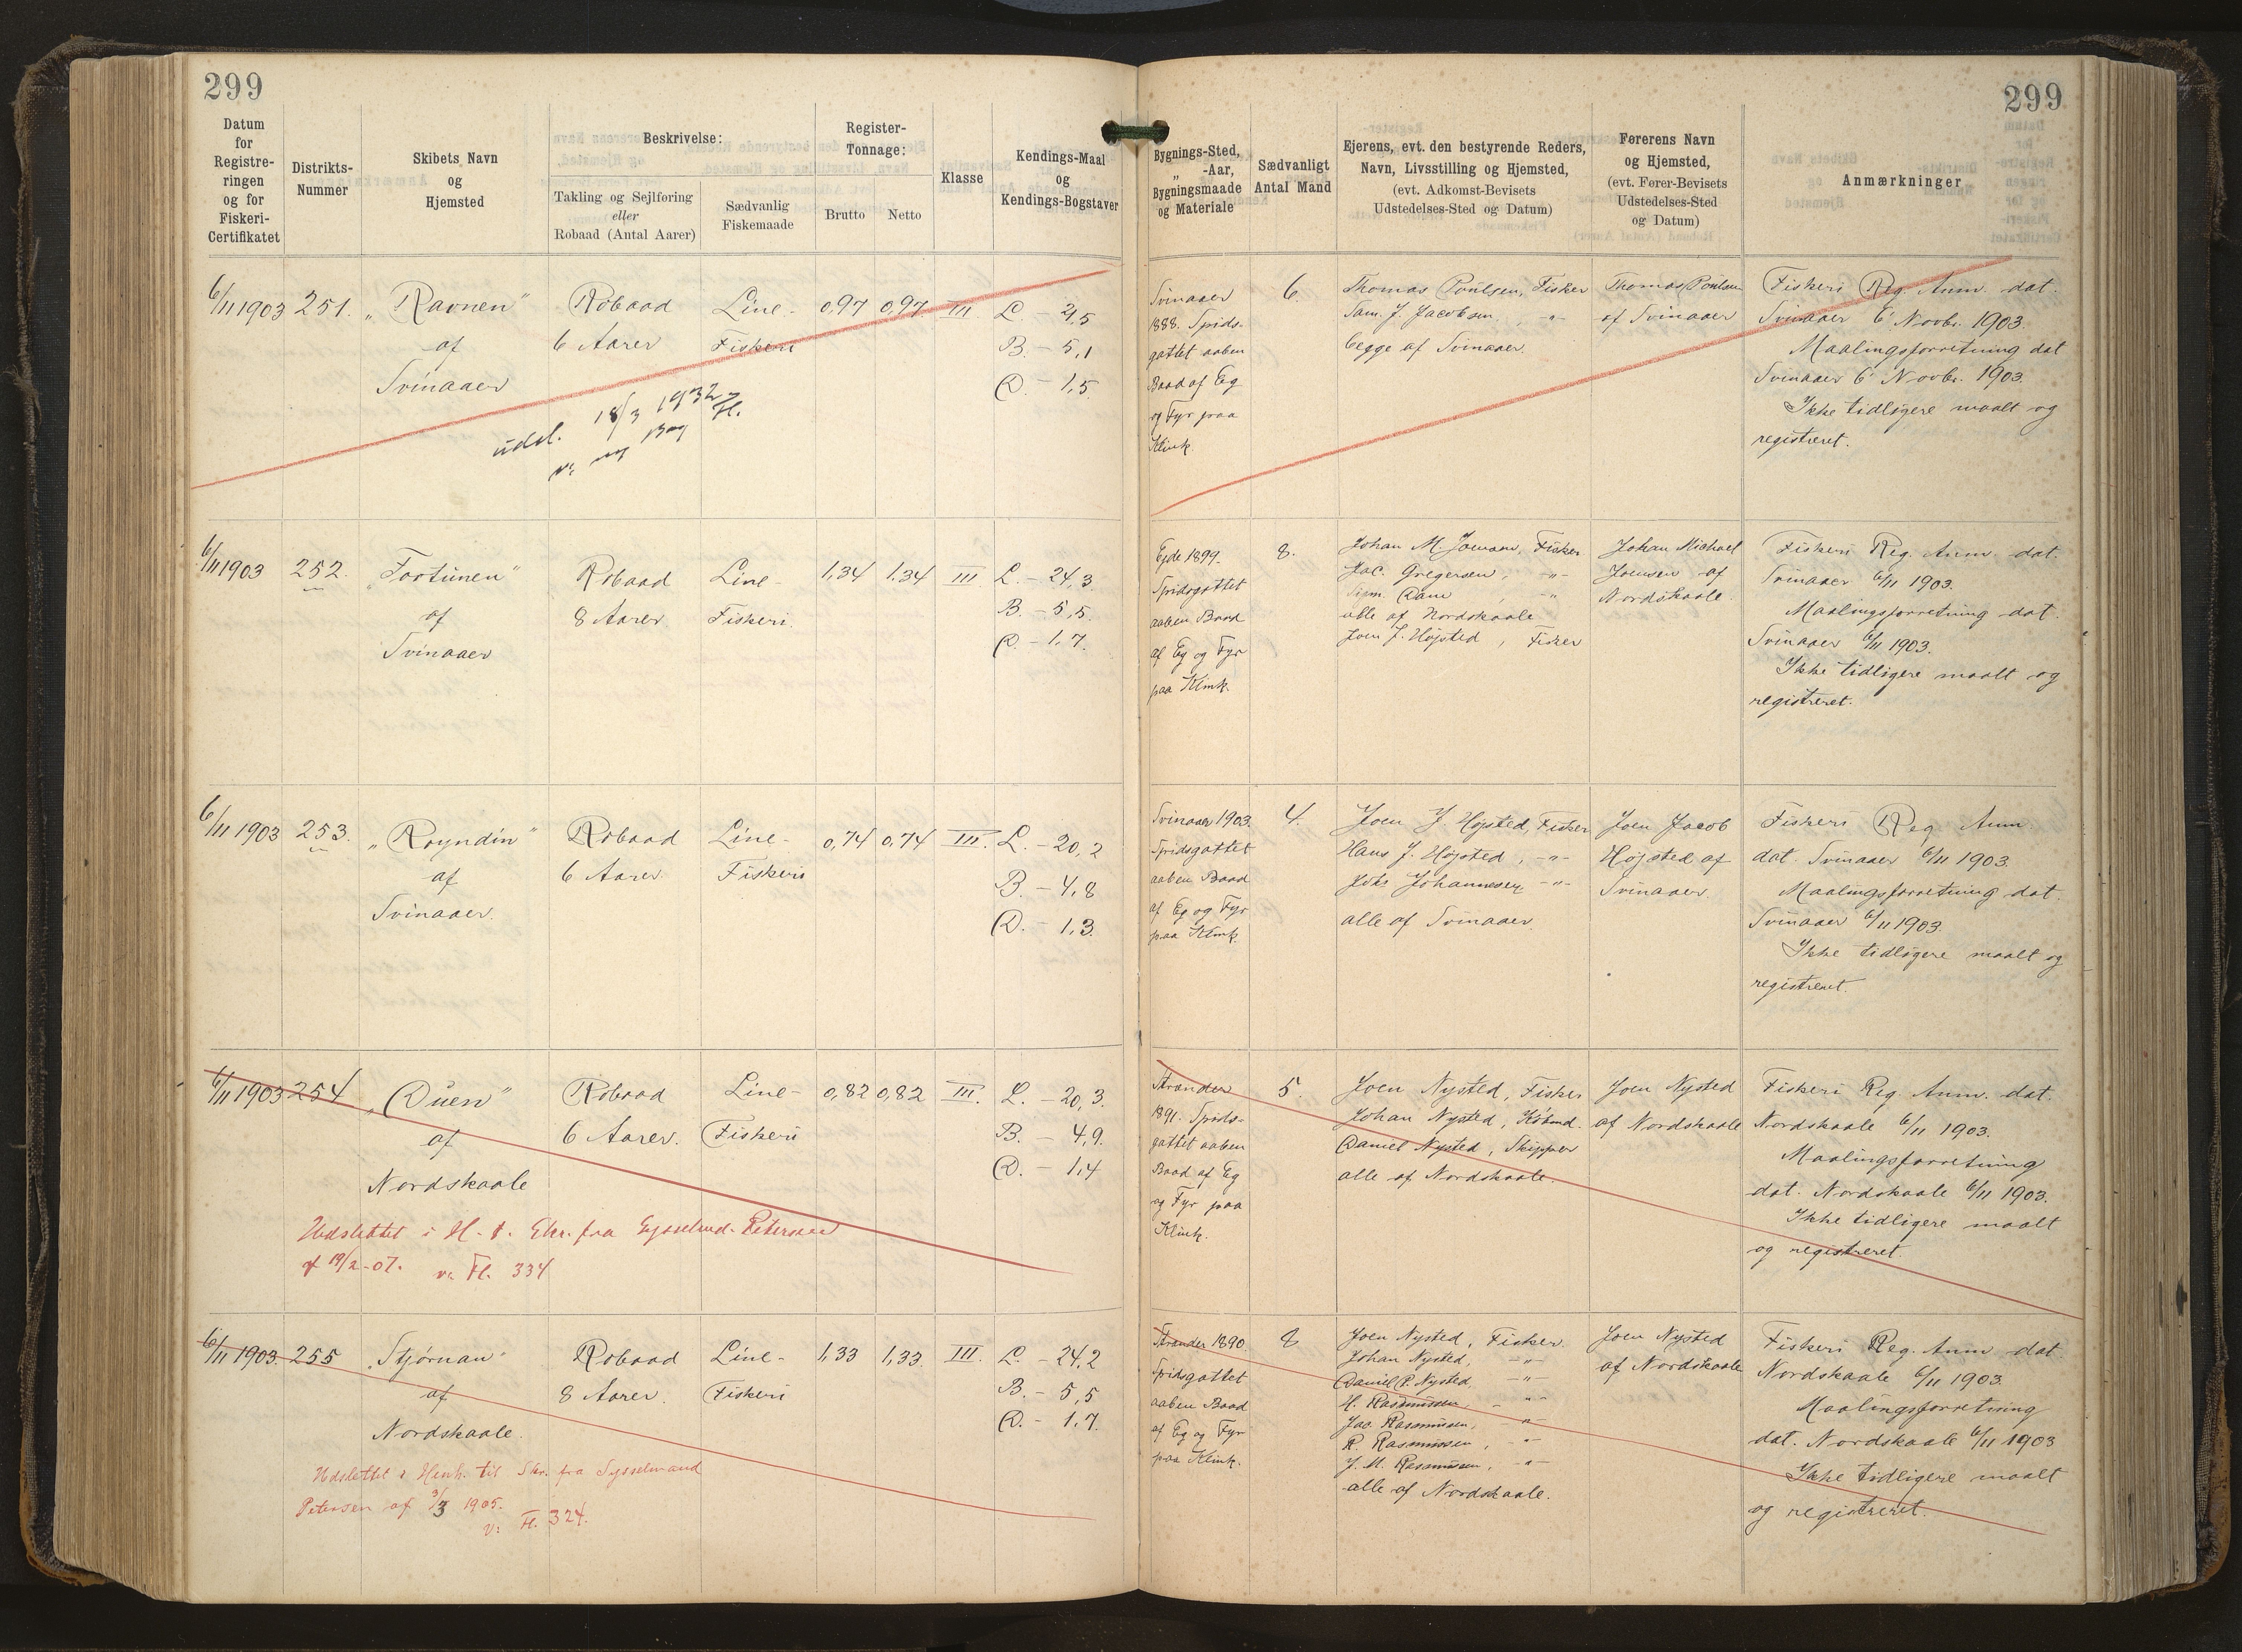 299
Datum
for
Registre-
ringen
og for
Fiskeri-
Certifikatet
Distrikts-
Nummer
Skibets Navn
og
Hjemsted
Beskrivelse:
Takling og Sejlføring
eller
Robaad (Antal Aarer)
Sædvanlig
Fiskemaade
Register-
Tonnage:
Brutto
Netto
Klasse
Kendings-Maal
og
Kendings-Bogstaver
6/11 1903
251.
„Ravnen"
af
Svinaaer
Robaad
6 Aarer
Line-
Fiskeri
0,97
0,97
III
L. - 21,5
B. - 5,1
D. - 1,5
udsl. 18/3 1932
6/11 1903
252.
„Fortunen"
af
Svinaaer
Robaad
8 Aarer
Line-
Fiskeri.
1,34
1.34
III
L. - 24,3
B. - 5,5.
D. - 1,7.
6/11 1903
253.
„Royndin"
af
Svinaaer.
Robaad
6 Aarer
Line-
Fiskeri
0,74
0,74
III.
L. - 20,2
B. - 4,8
D. - 1,3
6/11 1903
254
„Duen"
af
Nordskaale
Robaad
6 Aarer.
Line-
Fiskeri
0,82
0,82
III.
L. - 20,3.
B. - 4,9.
D. - 1,4
Udslettet i H. t. Skr. fra Sysselmd. Petersen
af 19/2-07. v: Fl. 334
6/11 1903.
255
„Stjørnan"
af
Nordskaale.
Robaad
8 Aarer.
Line-
Fiskeri
1,33
1,33.
III.
L. - 24,2
B. - 5,5
D. - 1,7.
Udslettet i Henh. til Skr. fra Sysselmand
Petersen af 3/3 1905.
v: Fl. 324.
299
Bygnings-Sted,
„ -Aar,
Bygningsmaade
og Materiale
Sædvanligt
Antal Mand
Ejerens, evt. den bestyrende Reders,
Navn, Livsstilling og Hjemsted,
(evt. Adkomst-Bevisets
Udstedelses-Sted og Datum)
Førerens Navn
og Hjemsted,
(evt. Fører-Bevisets
Udstedelses-Sted
og Datum)
Anmærkninger
Svinaaer
1888. Spids-
gattet aaben
Baad af Eg
og Fyr paa
Klink.
6.
Thomas Poulsen, Fisker
Sam. J. Jacobsen, -"-
begge af Svinaaer.
Thomas Poulsen
af Svinaaer
Fiskeri Reg. Anm. dat.
Svinaaer 6' Novbr. 1903.
Maalingsforretning dat
Svinaaer 6' Novbr. 1903.
Ikke tidligere maalt og
registreret.
Ejde 1899.
Spidsgattet
aaben Baad
af Eg og Fyr
paa Klink.
8.
Johan M. Joensen, Fisker
Jac. Gregersen, -"-
Dam , -"-
alle af Nordskaale
Joen J. Højsted, Fisker
Johan Michael
Joensen af
Nordskaale.
Fiskeri Reg. Anm. dat.
Svinaaer 6/11 1903.
Maalingsforretning dat.
Svinaaer 6/11 1903.
Ikke tidligere maalt og
registreret.
Svinaaer 1903.
Spidsgattet
aaben Baad
af Eg og Fyr
paa Klink.
4.
Joen J. Højsted, Fisker
Hans J. Højsted, -"-
Johannesen -"-
alle af Svinaaer.
Joen Jacob
Højsted af
Svinaaer.
Fiskeri Reg Anm.
dat. Svinaaer 6/11 1903.
Maalingsforretning dat.
Svinaaer 6/11 1903.
Ikke tidligere maalt og
registreret.
Strander
1891. Spids-
gattet aaben
Baad af Eg
og Fyr paa
Klink.
5.
Joen Nysted, Fisker
Johan Nysted, Købmd.
Daniel Nysted, Skipper
alle af Nordskaale.
Joen Nysted
af Nordskaale
Fiskeri Reg. Anm. dat.
Nordskaale 6/11 1903.
Maalingsforretning
dat. Nordskaale 6/11 1903.
Ikke tidligere maalt
og registreret.
Strander 1890.
Spidsgattet
aaben Baad
af Eg og Fyr
paa Klink.
8
Joen Nysted, Fisker
Johan Nysted, -"-
Daniel P. Nysted. -"-
H. Rasmussen, -"-
Jac Rasmussen, -"-
R. Rasmussen, -"-
J. M. Rasmussen, -"-
alle af Nordskaale.
Joen Nysted
af Nordskaale
Fiskeri Reg. Anm dat.
Nordskaale 6/11 1903.
Maalingsforretning
dat. Nordskaale 6/11 1903
Ikke tidligere maalt
og registreret.